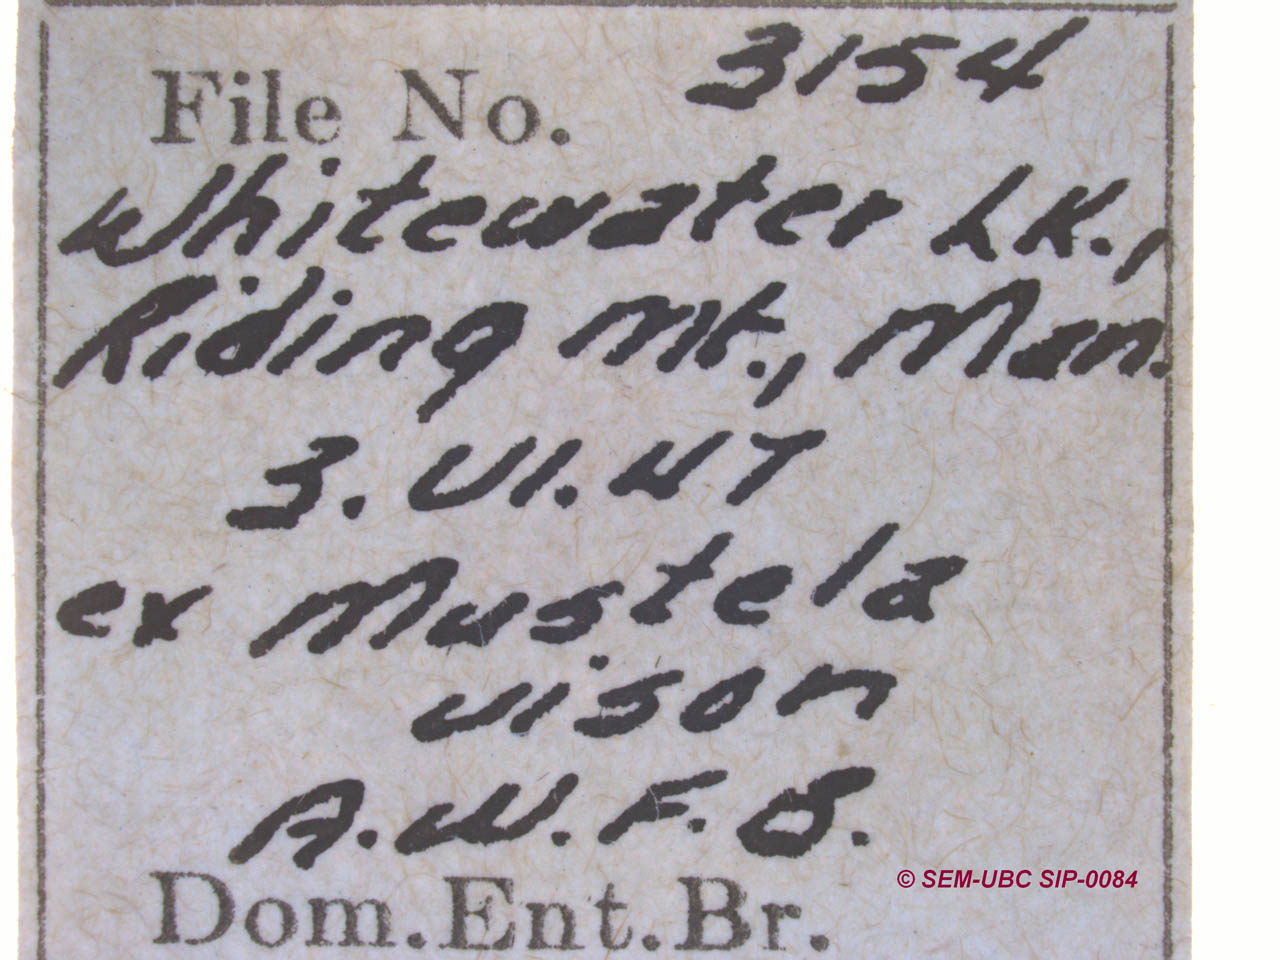 File No. 3154
Whitewater Lk.,
Riding Mt., Man.
3.VI.47
ex Mustela
vison
A.W.F.B.
© SEM-UBC SIP-0084
Dom.Ent.Br.